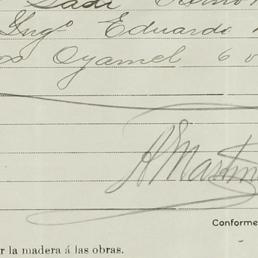 Sadi
Yngº Eduardo
Oyamel 6
A Martin
Conforme
r la madera á las obras.